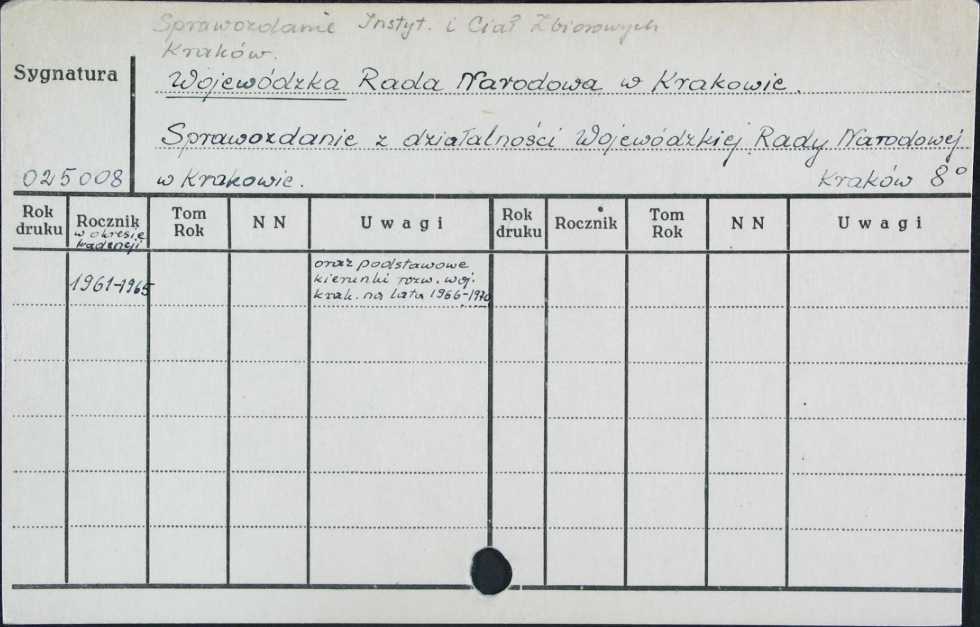 Sprawozdanie Instyt. i Ciał Zbiorowych
Kraków.
Sygnatura
Wojewódzka Rada Narodowa w Krakowie.
Sprawozdanie z działalności Wojewódzkiej Rady Narodowej
025008 w Krakowie. Kraków 8°
Rok druku Rocznik w okresie kadencji Tom Rok N N Uwagi Rok druku Rocznik Tom Rok N N Uwagi
1961-1965
oraz podstawowe
kierunki rozw. woj.
krak. na lata 1966-1970